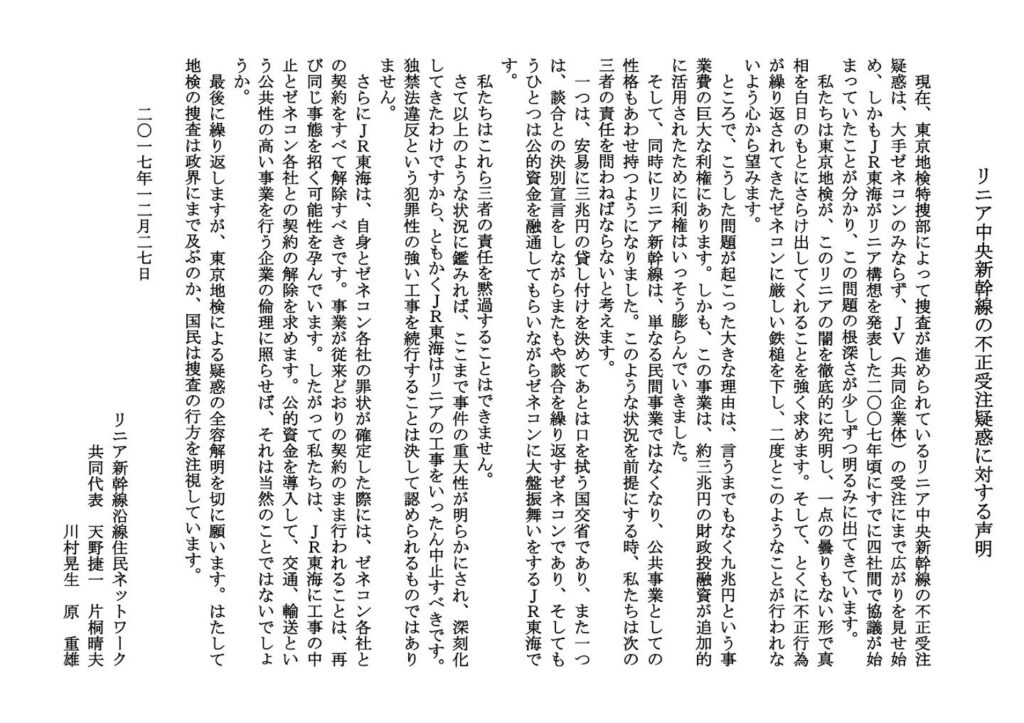 リニア中央新幹線の不正受注疑惑に対する声明
現在、東京地検特捜部によって捜査が進められているリニア中央新幹線の不正受注
疑惑は、大手ゼネコンのみならず、JV（共同企業体）の受注にまで広がりを見せ始
め、しかもJR東海がリニア構想を発表した二〇〇七年頃にすでに四社間で協議が始
まっていたことが分かり、この問題の根深さが少しずつ明るみに出てきています。
私たちは東京地検が、このリニアの闇を徹底的に究明し、一点の曇りもない形で真
相を白日のもとにさらけ出してくれることを強く求めます。そして、とくに不正行為
が繰り返されてきたゼネコンに厳しい鉄槌を下し、二度とこのようなことが行われな
いよう心から望みます。
ところで、こうした問題が起こった大きな理由は、言うまでもなく九兆円という事
業費の巨大な利権にあります。しかも、この事業は、約三兆円の財政投融資が追加的
に活用されたために利権はいっそう膨らんでいきました。
そして、同時にリニア新幹線は、単なる民間事業ではなくなり、公共事業としての
性格もあわせ持つようになりました。このような状況を前提にする時、私たちは次の
三者の責任を問わねばならないと考えます。
一つは、安易に三兆円の貸し付けを決めてあとは口を拭う国交省であり、また一つ
は、談合との決別宣言をしながらまたもや談合を繰り返すゼネコンであり、そしても
うひとつは公的資金を融通してもらいながらゼネコンに大盤振舞いをするJR東海で
す。
私たちはこれら三者の責任を黙過することはできません。
さて以上のような状況に鑑みれば、ここまで事件の重大性が明らかにされ、深刻化
してきたわけですから、ともかくJR東海はリニアの工事をいったん中止すべきです。
独禁法違反という犯罪性の強い工事を続行することは決して認められるものではあり
ません。
さらにJR東海は、自身とゼネコン各社の罪状が確定した際には、ゼネコン各社と
の契約をすべて解除すべきです。事業が従来どおりの契約のまま行われることは、再
び同じ事態を招く可能性を孕んでいます。したがって私たちは、JR東海に工事の中
止とゼネコン各社との契約の解除を求めます。公的資金を導入して、交通、輸送とい
う公共性の高い事業を行う企業の倫理に照らせば、それは当然のことではないでしょ
うか。
最後に繰り返しますが、東京地検による疑惑の全容解明を切に願います。はたして
地検の捜査は政界にまで及ぶのか、国民は捜査の行方を注視しています。
二〇一七年一二月二七日
リニア新幹線沿線住民ネットワーク
共同代表 天野捷一 片桐晴夫
川村晃生 原 重雄